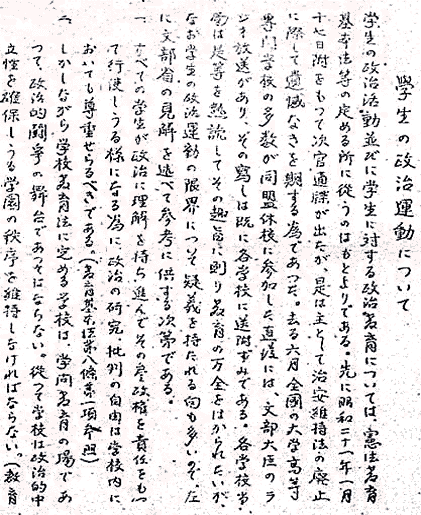 学生の政治運動について
学生の政治活動並びに学生に対する政治教育については、憲法教育
基本法等の定める所に従うのはもとよりである。先に昭和二十一年一月
十七日附をもつて次官通牒が出たが、是は主として治安維持法の廃止
に際して遺憾なきを期する為であつた。去る六月全国の大学高等
専門学校の多数が同盟休校に参加した直後には、文部大臣のラ
ジオ放送があり、その寫しは既に各学校に送附ずみである。各学校当
局は是等を熟読してその趣旨に則り教育の万全をはかられたいが、
なお学生の政治運動の限界について疑義を持たれる向も多いので、左
に文部省の見解を述べて参考に供する次第である。
一、すべての学生が政治に理解を持ち、進んでその参政権を責任をもつ
て行使しうる様になる為に、政治の研究、批判の自由は学校内に
おいても尊重せらるべきである。(教育基本法第八條第一項参照)
二、しかしながら学校教育法に定める学校は、学問教育の場であ
つて、政治的鬪爭の舞台であつてはならない。従つて学校は政治的中
立性を確保しうる学園の秩序を維持しなければならない。(教育